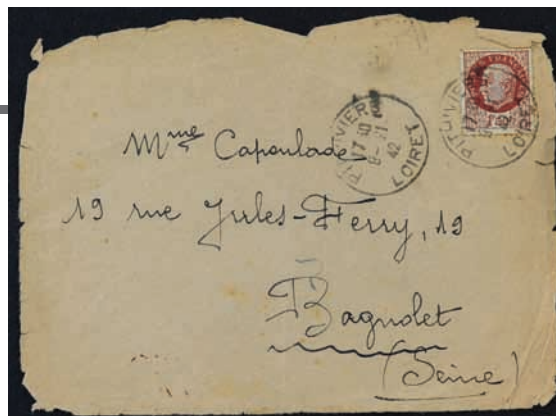 PITHIVIERS
17 30
LOIRET
PITHIVIERS
17 30
42
LOIRET
Mme Capoulade
19 rue Jules-Ferry, 19
Bagnolet
(Seine)